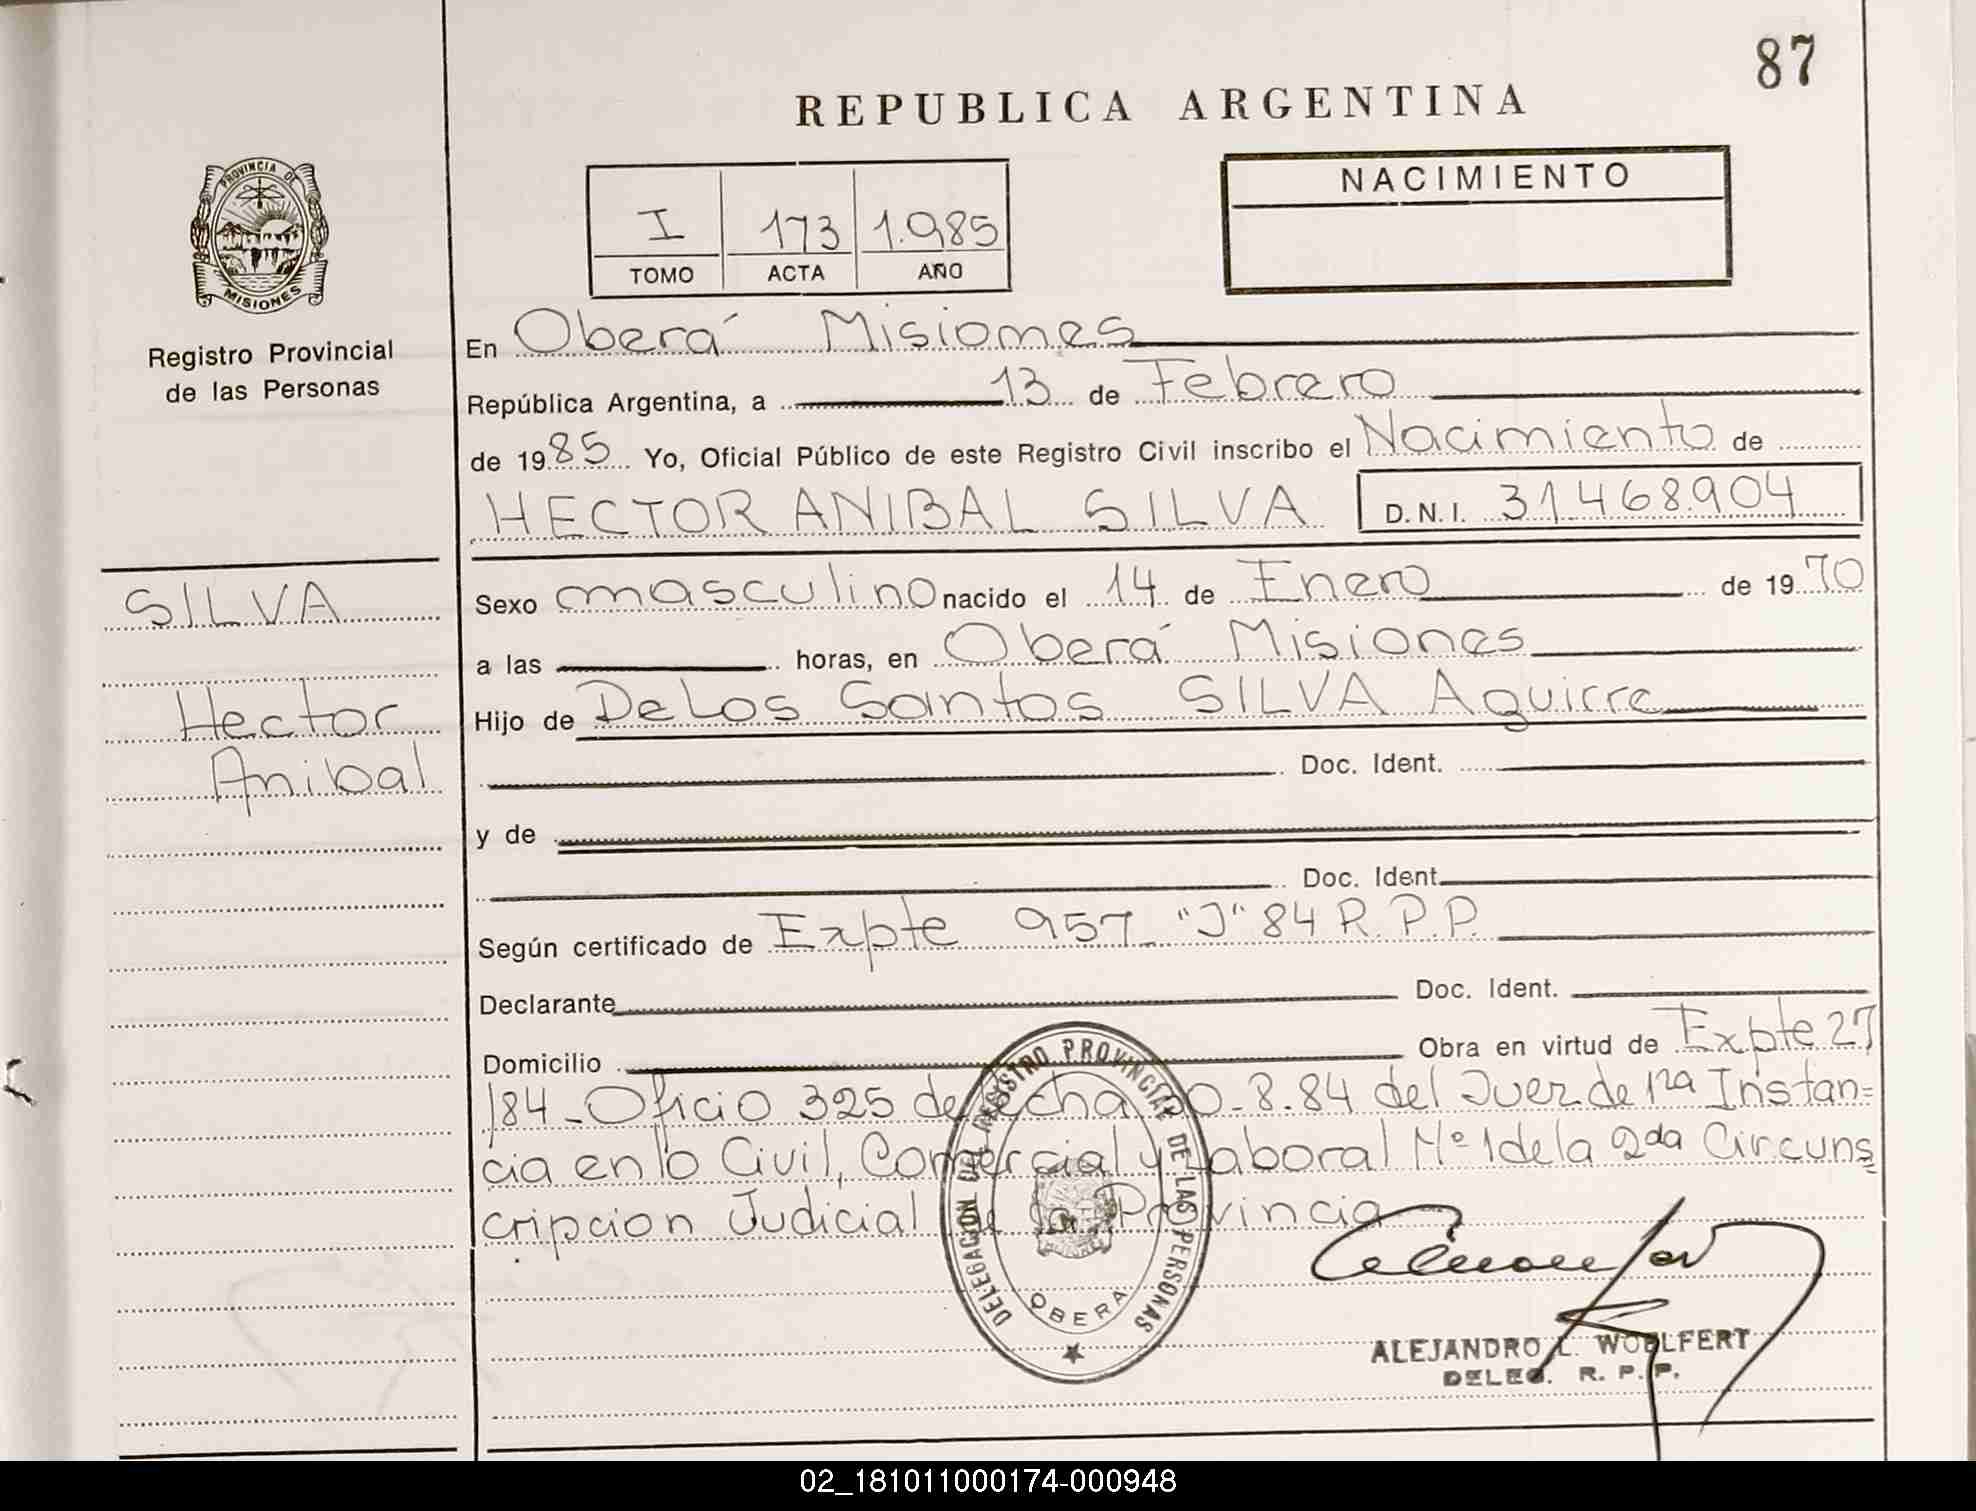 87
REPUBLICA ARGENTINA
PROVINCIA DE
MISIONES
Registro Provincial
de las Personas
I 173 1.985
TOMO ACTA AÑO
NACIMIENTO
En Oberá Misiones
República Argentina, a 13 de Febrero
de 1985 Yo, Oficial Público de este Registro Civil inscribo el Nacimiento de
HECTOR ANIBAL SILVA D.N.I. 31.468.904
SILVA
Hector
Anibal
Sexo masculino nacido el 14 de Enero de 1970
a las horas, en Oberá Misiones
Hijo de De Los Santos SILVA Aguirre
Doc. Ident.
y de
Doc. Ident.
Según certificado de Expte 957 "J" 84 R.P.P.
Declarante Doc. Ident.
Domicilio Obra en virtud de Expte 27
/84 - Oficio 325 de fecha 30-8.84 del Juez de 1ra Instan=
cia en lo Civil, Comercial y Laboral Nº 1 de la 2da Circuns=
cripcion Judicial de la Provincia
DELEGACION DEL REGISTRO PROVINCIAL DE LAS PERSONAS
OBERA
ALEJANDRO L. WOELFERT
DELEG. R. P. P.
02_181011000174-000948